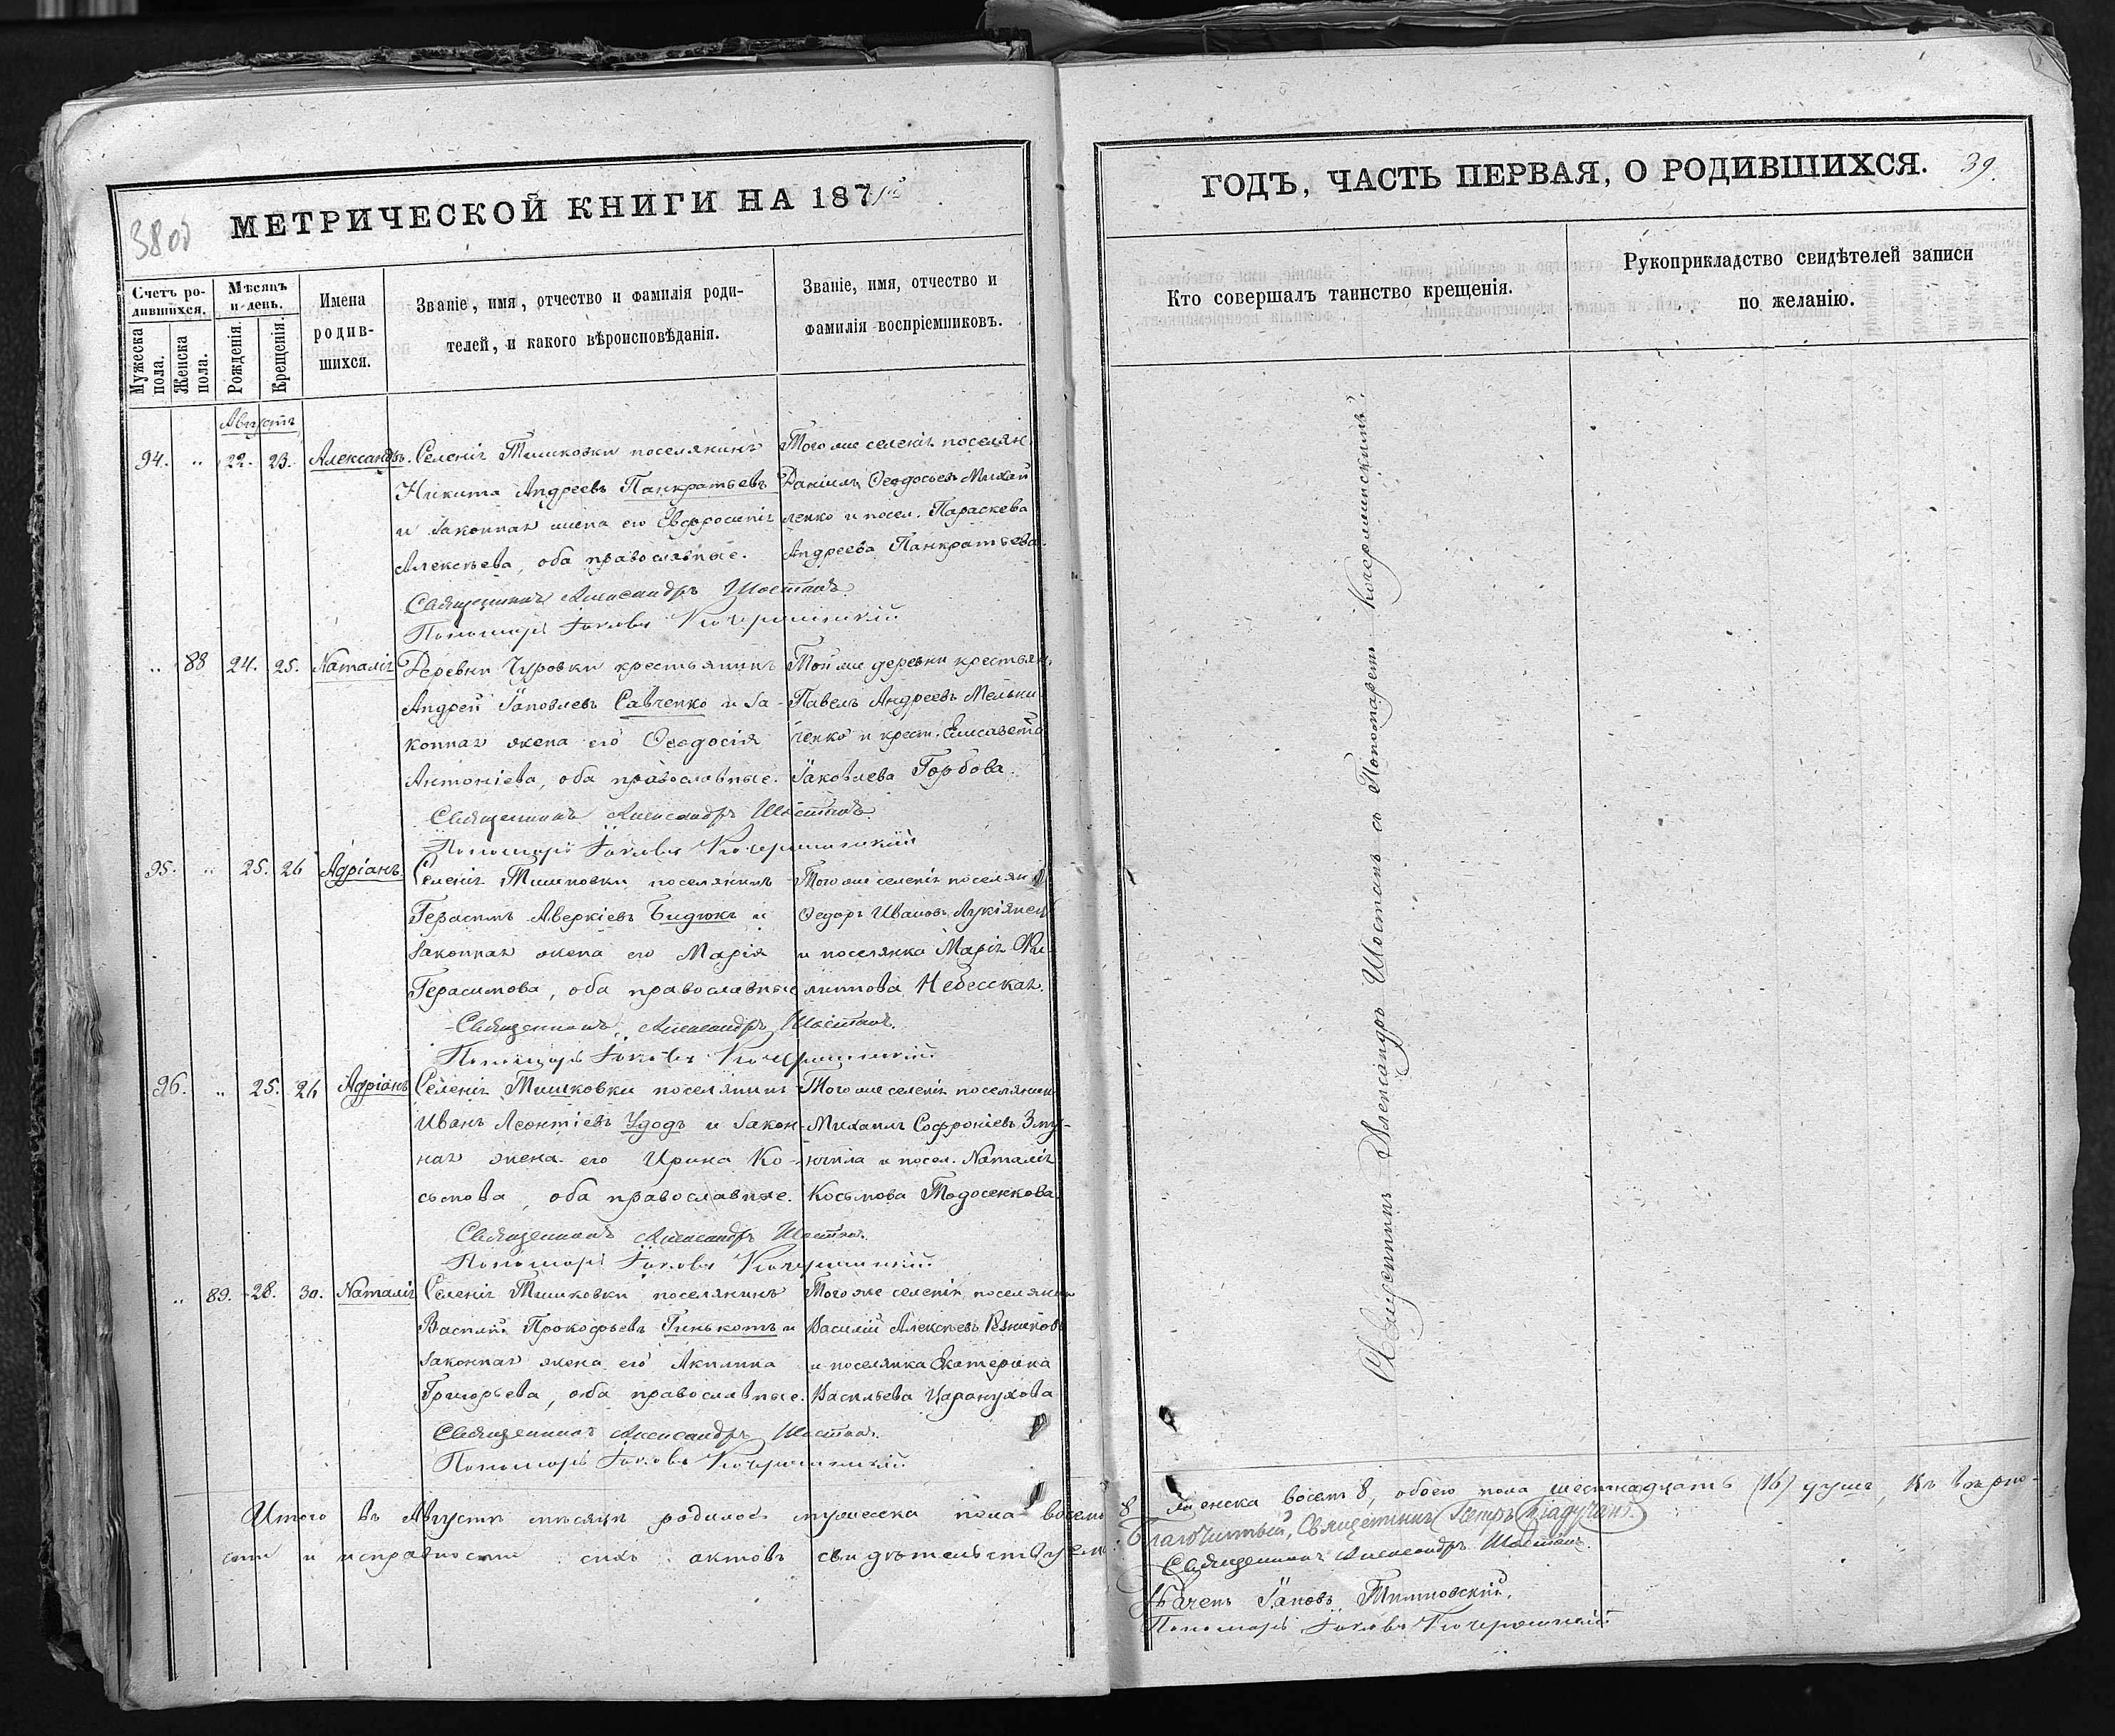 МЕТРИЧЕСКОЙ КНИГИ НА 187
Счетъ ро-
дившихся.
Мужеска
пола.
Женска
пола.
Мѣсяцъ
и день.
Рожденія.
Крещенія.
Имена
родив-
шихся.
Званіе, имя, отчество и фамилія роди-
телей, и какого вѣроисповѣданія.
Званіе, имя, отчество и
фамилія воспріемниковъ.
Августъ
94. " 22. 23. Александръ. Селенія Тишковки поселянинъ Того же селенія поселян.
Никита Андреевъ Панкратьевъ Даніилъ Ѳеодосьев Михай
и законная жена его Евфросинія ленко и посел. Параскева
Алексѣева, оба православные. Андреева Панкратьева.
Священникъ Александръ Шостакъ
Пономарь Іаковъ
" 88 24. 25. Наталія Деревни Чуровки крестьянинъ Той же деревни крестьян.
Андрей Іаковлевъ Савченко и за- Павелъ Андреевъ Мельни
конная жена его Ѳеодосія ченко и крест. Елисавета
Антоніева, оба православные. Іаковлева Горбова.
Священникъ Александръ Шостакъ
Пономарь Іаковъ
95. " 25. 26 Адріанъ. Селенія Тишковки поселянинъ Того же селенія поселян
Герасимъ Аверкіевъ Бидюкъ и Ѳедоръ Ивановъ Лукіянец
законная жена его Марія и поселянка Марія Фи-
Герасимова, оба православные липпова Небесская.
Священникъ Александръ Шостакъ.
Пономарь Іаковъ
96. " 25. 26 Адріанъ Селенія Тишковки поселянинъ Того же селенія поселянин
Иванъ Леонтіевъ Удодъ и закон- Михаилъ Софроніевъ
ная жена его Ирина Ко- и посел. Наталія
сьмова, оба православные. Косьмова Тодосенкова.
Священникъ Александръ Шостакъ.
Пономарь Іаковъ
" 89. 28. 30. Наталія Селенія Тишковки поселянинъ Того же селенія поселянин
Василій Прокофьевъ Гинькотъ и Василій Алексѣевъ Резников
законная жена его Акилина и поселянка Екатерина
Григорьева, оба православные. Васильева Царанухова
Священникъ Александръ Шостакъ.
Пономарь Іаковъ
Итого въ Августѣ мѣсяцѣ родилось мужеска пола восемь
сти и исправности сихъ актовъ свидѣтельствуем:
ГОДЪ, ЧАСТЬ ПЕРВАЯ, О РОДИВШИХСЯ. 39.
Кто совершалъ таинство крещенія.
Рукоприкладство свидѣтелей записи
по желанію.
Священникъ Александръ Шостакъ съ Пономаремъ
8 женска восемь 8, обоего пола шестнадцать (16) душъ, въ вѣрно-
Благочинный, Священникъ Петръ
Священникъ Александръ Шостакъ.
Дьячекъ Іаковъ Тишковскій.
Пономарь Іаковъ